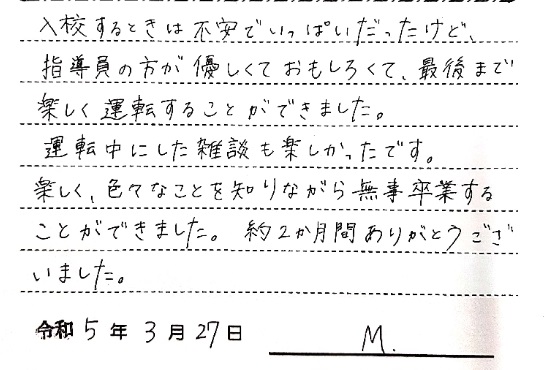 入校するときは不安でいっぱいだったけど、
指導員の方が優しくておもしろくて、最後まで
楽しく運転することができました。
運転中にした雑談も楽しかったです。
楽しく、色々なことを知りながら無事卒業する
ことができました。約2か月間ありがとうござ
いました。
令和5年3月27日 M.